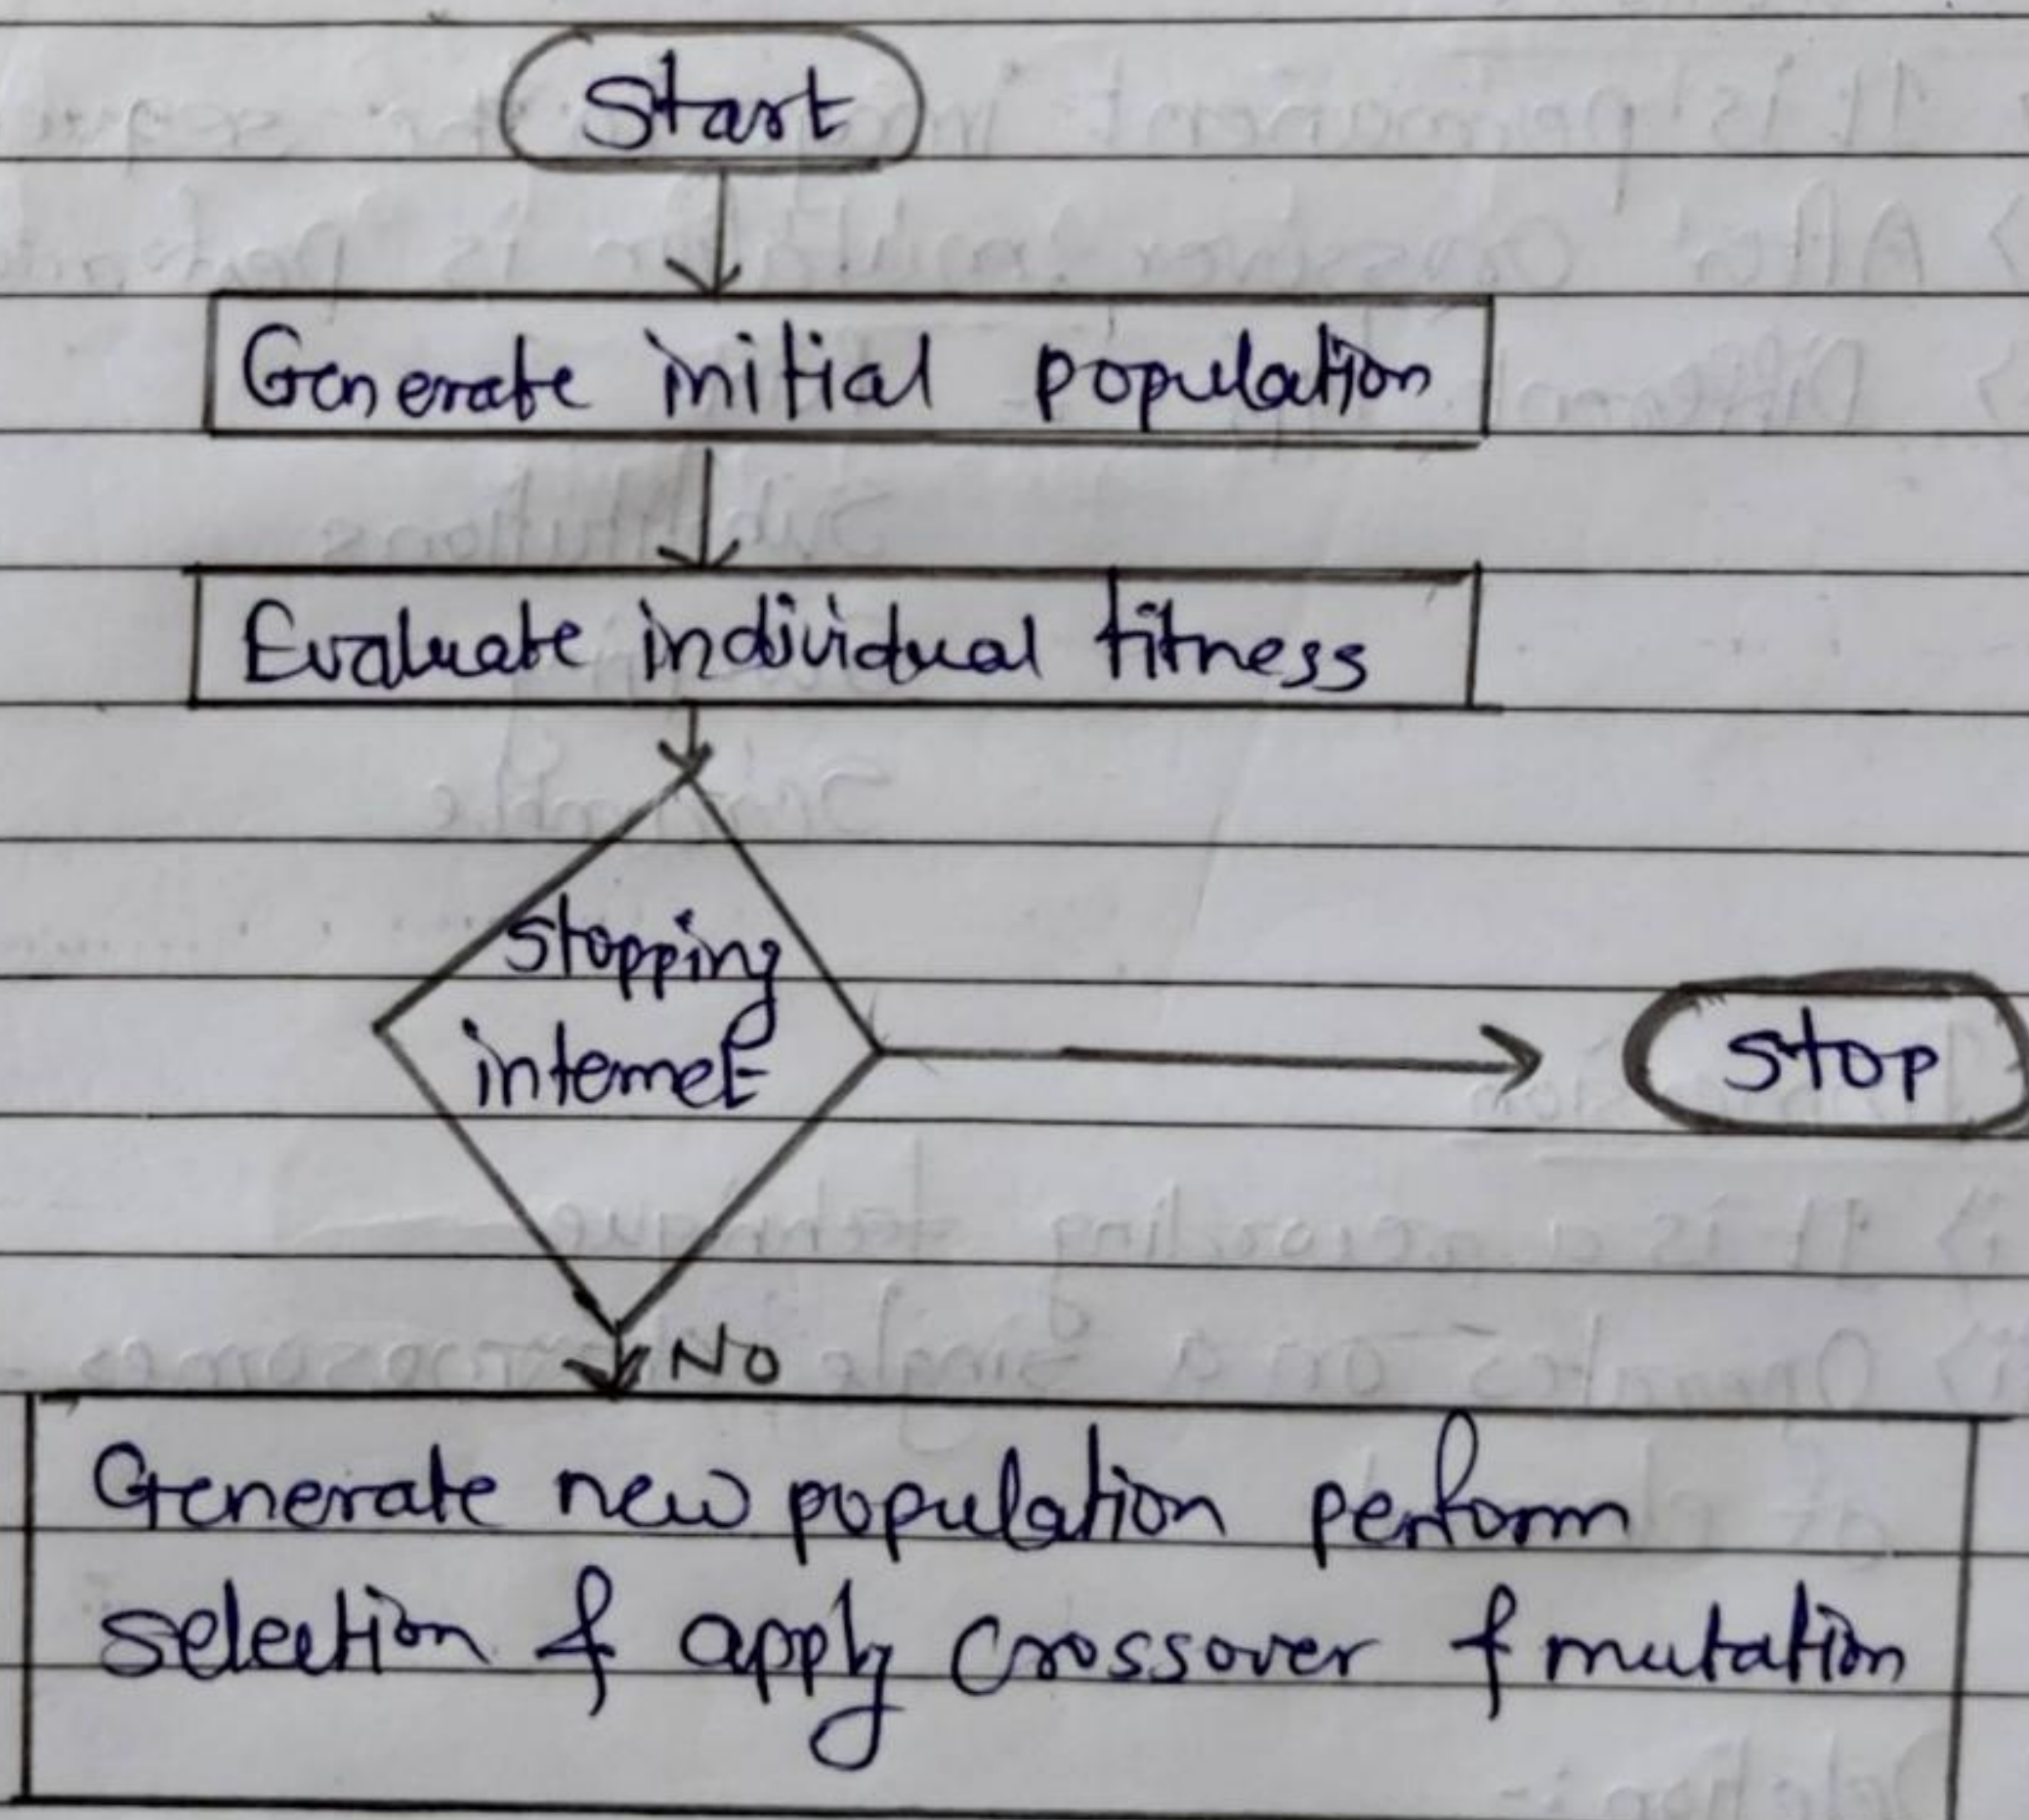 Start
Generate initial population
Evaluate individual fitness
Stopping
internet
Stop
No
Generate new population perform
selection & apply crossover & mutation